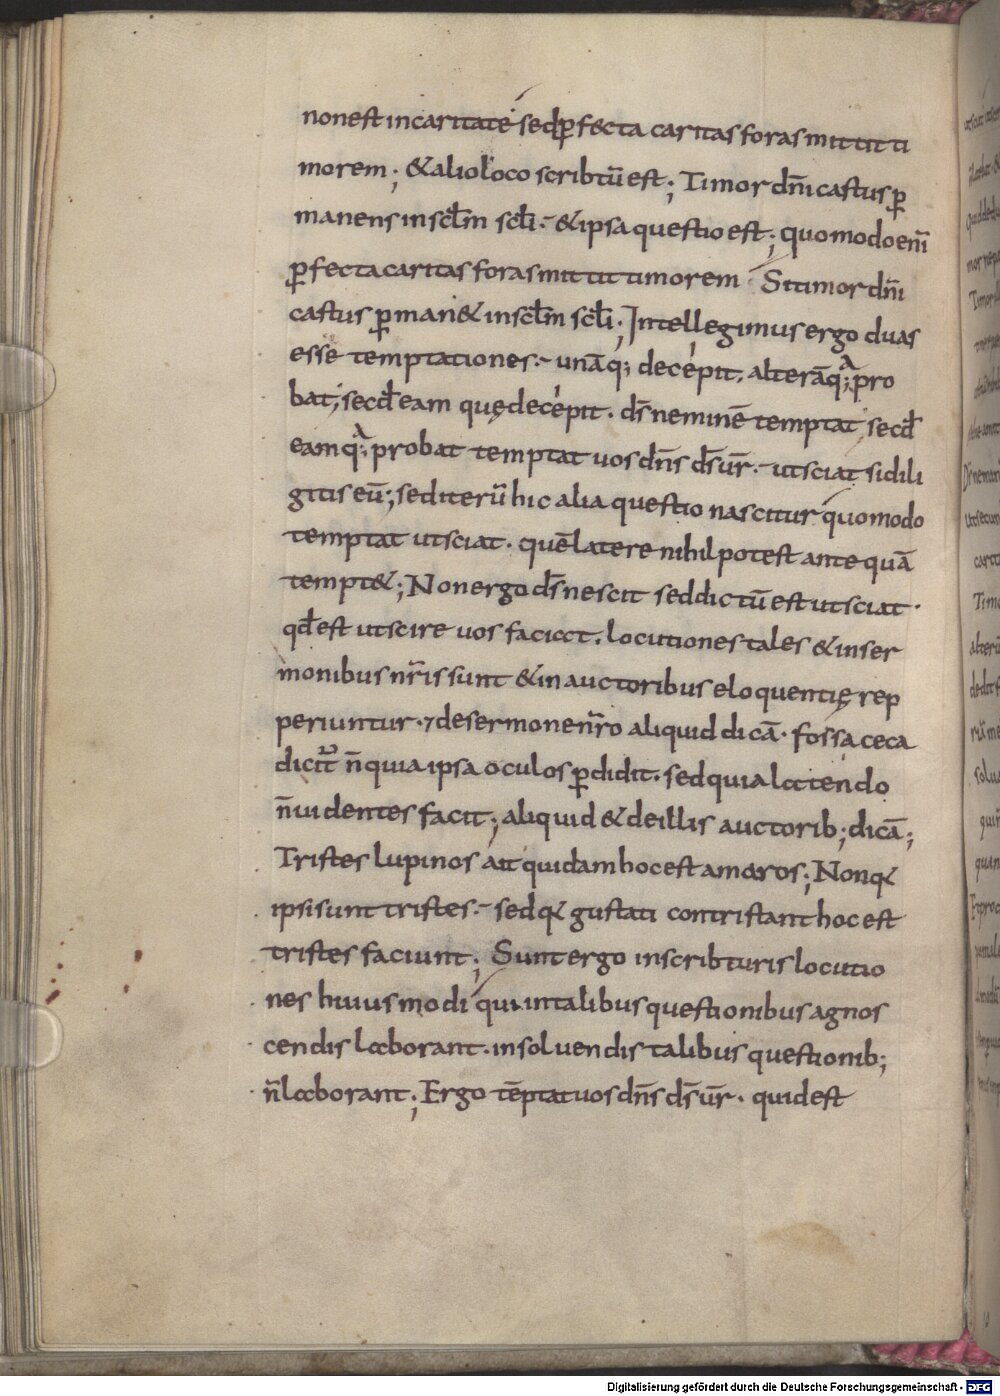 non est incaritate sed ꝑfecta caritas foras mittit ti
morem; & alio loco scribtū est; Timor dn̄i castus ꝑ
manens in scl̄m scl̄i. & ipsa questio est; quomodo eni̅
ꝑfecta caritas foras mittit timorem Si timor dn̄i
castus ꝑman& in scl̄m scl̄i; Intellegimus ergo duas
esse temptationes. unāq; decepit. alterāq; pro
bat; secd̄ eam quę decepit. ds̄ neminē temptat secd̄
eam q; probat temptat uos dn̄s ds̄ ur̄. ut sciat si dili
gitis eū; sed iterū hic alia questio nascitur quomodo
temptat ut sciat. quē latere nihil potest antequā
tempt&; Non ergo ds̄ nescit sed dictū est ut sciat.
qd̄ est ut scire uos faciat. locutiones tales & in ser
monibus nr̄is sunt & in auctoribus eloquentię rep
periuntur. 7 de sermone nr̄o aliquid dicā. fossa ceca
dicit̄ n̄ quia ipsa oculos ꝑdidit. sed quia latendo
n̄ uidentes facit; aliquid & de illis auctorib; dicā;
Tristes lupinos ait quidam hoc est amaros; Non qđ
ipsi sunt tristes. sed qđ gustati contristant hoc est
tristes faciunt; Sunt ergo in scribturis locutio
nes huiusmodi qui in talibus questionibus agnos
cendis laborant. in soluendis talibus questionib;
n̄ laborant; Ergo tēptat uos dn̄s ds̄ ur̄. quid est
Digitalisierung gefördert durch die Deutsche Forschungsgemeinschaft - DFG